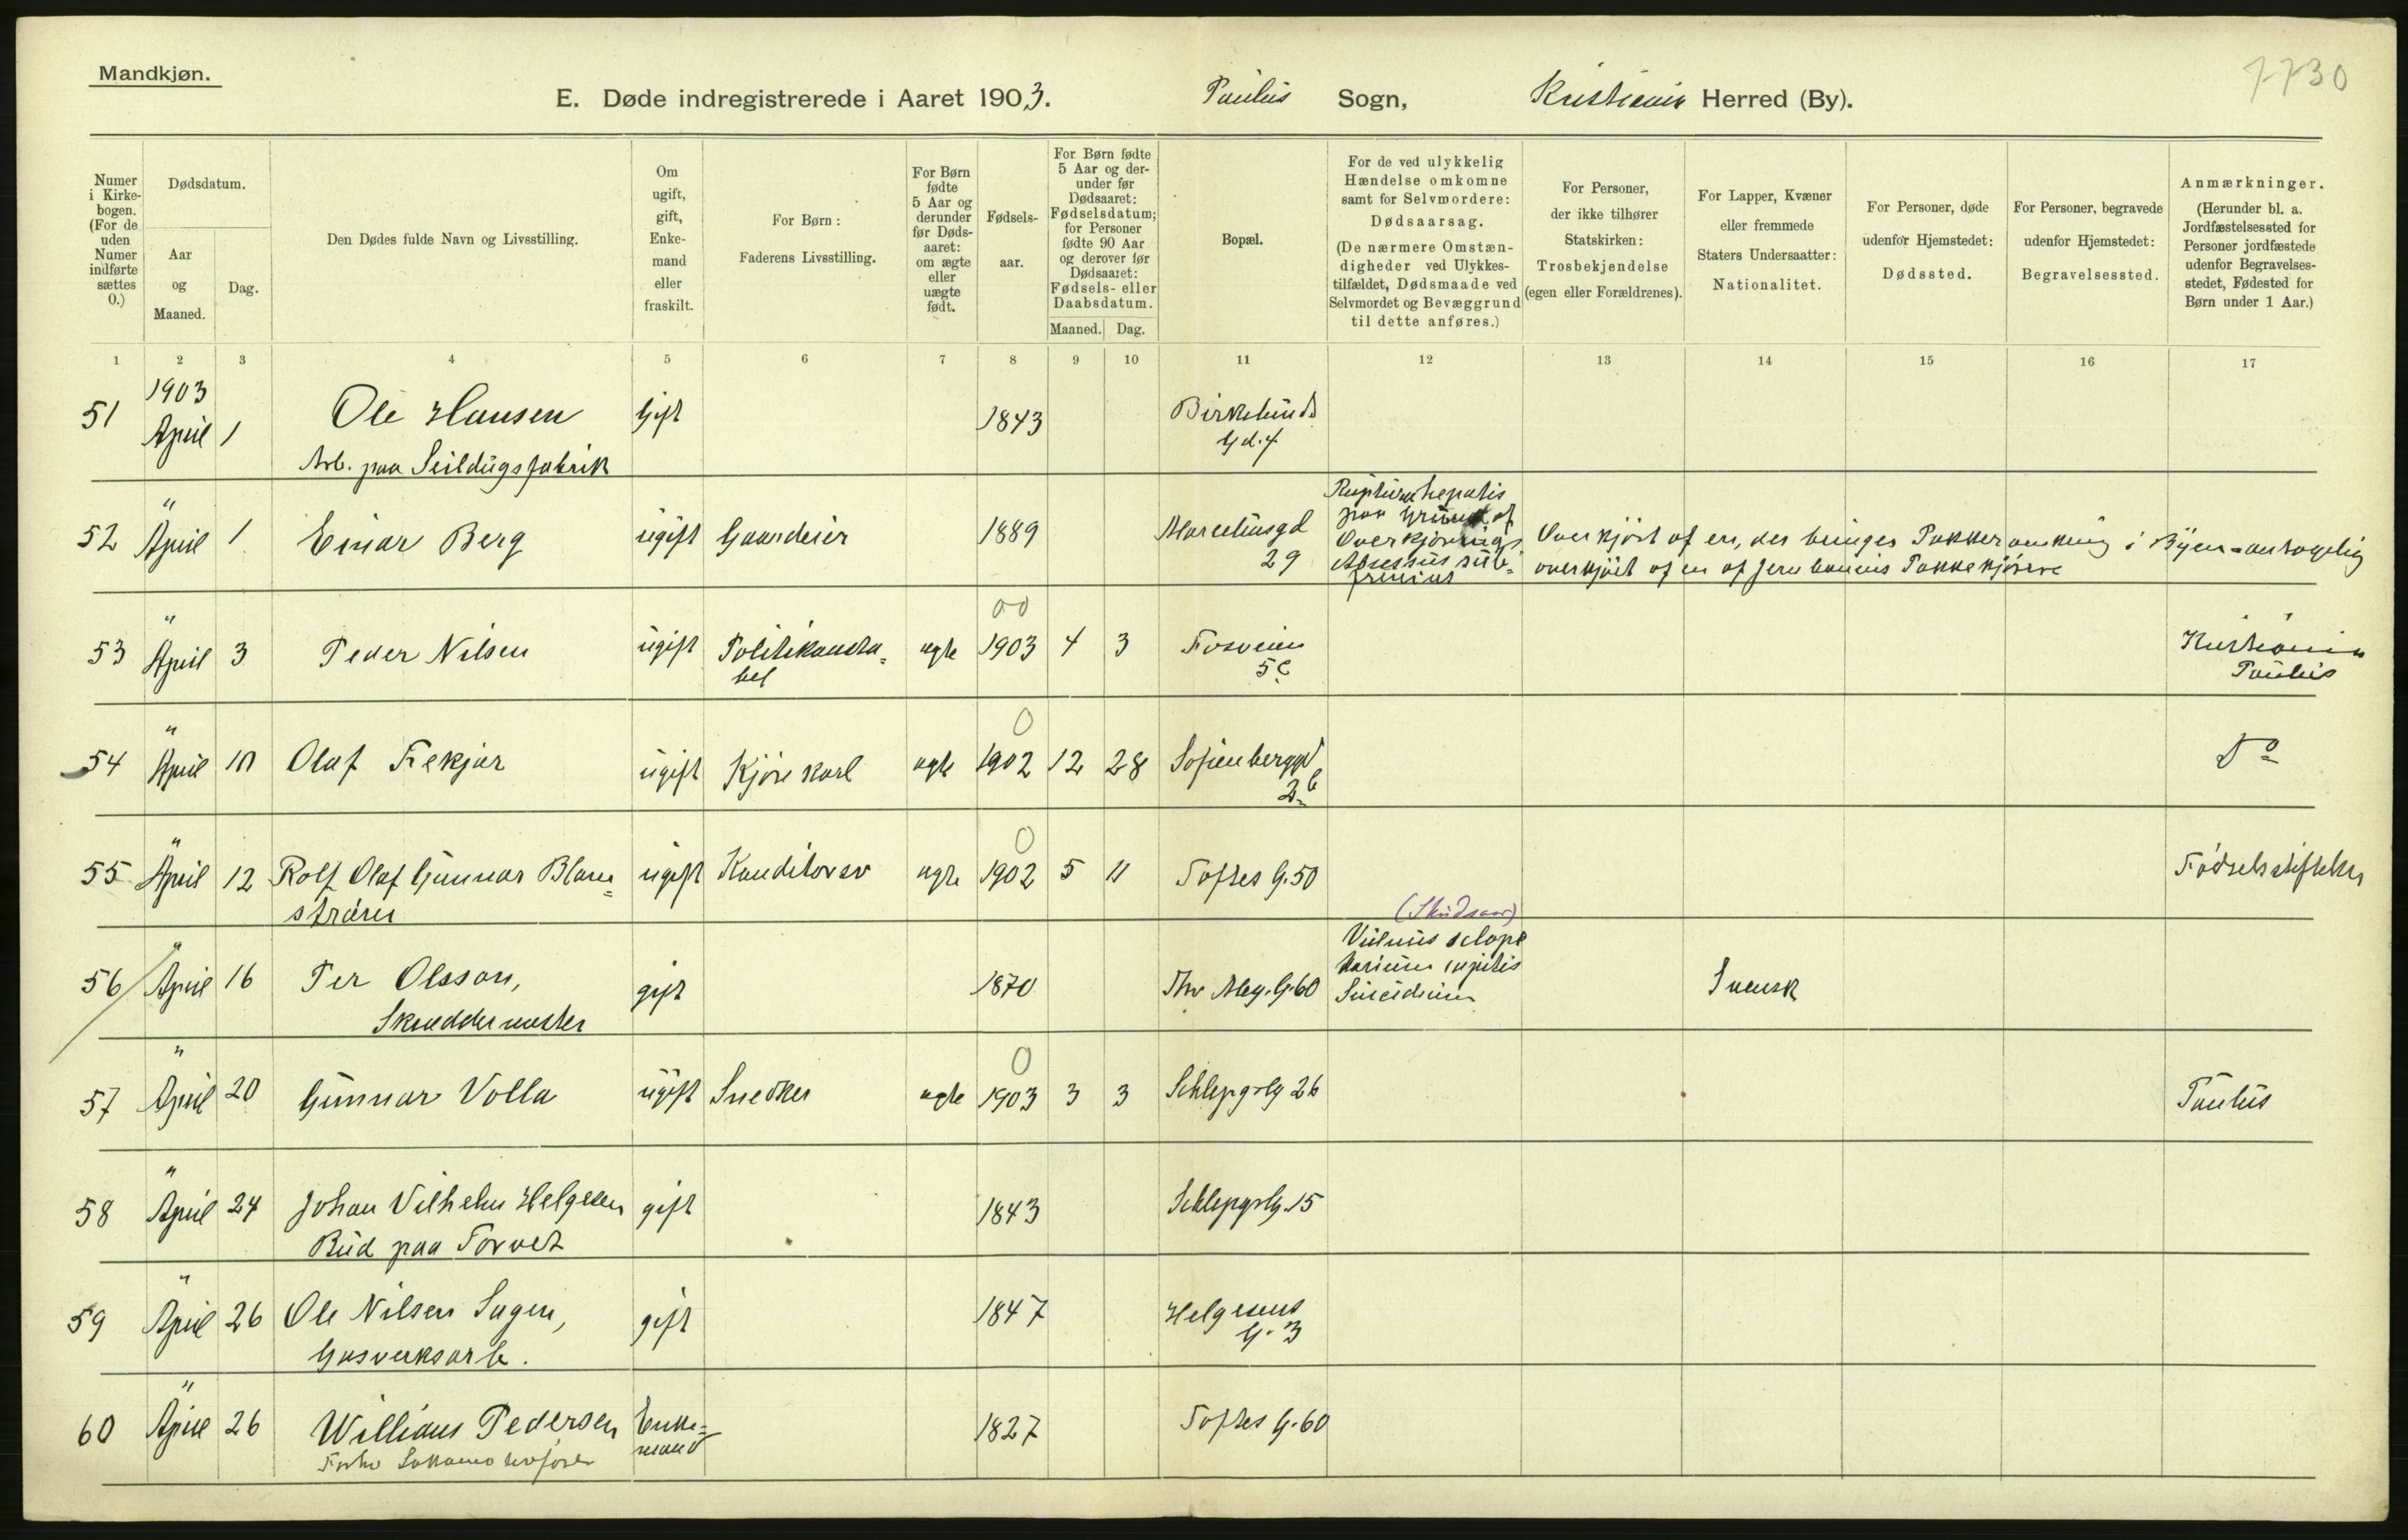 Mandkjøn.
E. Døde indregistrerede i Aaret 1903. Paulus Sogn, Kristiania Herred (By).
7730
Numer i Kirkebogen. (For de uden Numer indførte sættes 0.)
Dødsdatum.
Aar og Maaned.
Dag.
Den Dødes fulde Navn og Livsstilling.
Om ugift, gift, Enkemand eller fraskilt.
For Børn: Faderens Livsstilling.
For Børn fødte 5 Aar og derunder før Dødsaaret: om ægte eller uægte født.
Fødselsaar.
For Børn fødte 5 Aar og derunder før Dødsaaret: Fødselsdatum; for Personer fødte 90 Aar og derover før Dødsaaret: Fødsels- eller Daabsdatum.
Maaned. Dag.
Bopæl.
For de ved ulykkelig Hændelse omkomne samt for Selvmordere: Dødsaarsag. (De nærmere Omstændigheder ved Ulykkestilfældet, Dødsmaade ved Selvmordet og Bevæggrund til dette anføres.)
For Personer, der ikke tilhører Statskirken: Trosbekjendelse (egen eller Forældrenes).
For Lapper, Kvæner eller fremmede Staters Undersaatter: Nationalitet.
For Personer, døde udenfor Hjemstedet: Dødssted.
For Personer, begravede udenfor Hjemstedet: Begravelsessted.
Anmærkninger. (Herunder bl. a. Jordfæstelsessted for Personer jordfæstede udenfor Begravelsesstedet, Fødested for Børn under 1 Aar.)
1 2 3 4 5 6 7 8 9 10 11 12 13 14 15 16 17
51 1903 April 1 Ole Hansen Gift 1843 Birkelunds
Gd. 4
Arb. paa Seildugsfabrik
52 " April 1 Einar Berg ugift Gaardeier 1889 Marcelius gd 29
Ruptura hepatis
paa Grund af
Overkjørings
Absessus sub-
frenicus
Overkjørt af en, der bringer Pakker omkring i Byen - antagelig
overkjørt af en af Jernbanens Pakkekjørere
53 " April 3 Peder Nilsen ugift Politikonsta=
bel ægte 00 1903 4 3 Fosveien
5c Kristiania
Paulus
54 " April 10 Olaf Fekjær ugift Kjørekarl ægte 0 1902 12 28 Sofienberggd
2b Do
55 " April 12 Rolf Olaf Gunnar Blom=
strøm ugift Konditorsv ægte 0 1902 5 11 Toftes G. 50 Fødselsstiftelsen
56 " April 16 Per Olsson,
Skræddermester gift 1870 Thv Mey. G. 60
(Skudsaar)
Vulnus sclope
tarium capitis
Suicidium
Svensk
57 " April 20 Gunnar Volla ugift Snedker ægte 0 1903 3 3 Schleppgrlg 26 Paulus
58 " April 24 Johan Vilhelm Helgesen gift 1843 Schleppgrlg. 15
Bud paa Torvet
59 " April 26 Ole Nilsen Sagen, gift 1847 Helgesens
G. 3
Gasverksarb.
60 " April 26 William Pedersen Enke=
mand 1827 Toftes G. 60
Forhv Lokomotivfører